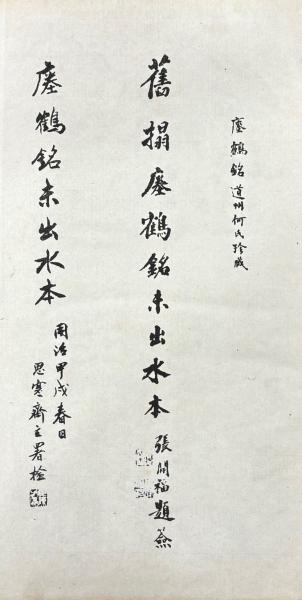 瘞鶴銘道州何氏珍藏
舊搨瘞鶴銘未出水本 張開福題簽
瘞鶴銘未出水本
同治甲戌春日
思寒齋主署檢